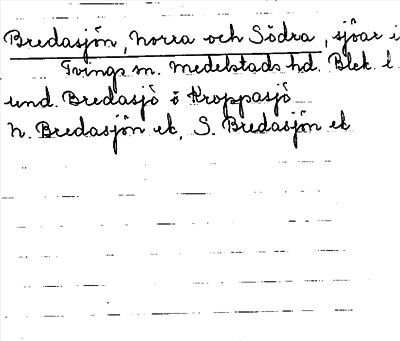 Bredasjön, Norra och Södra, sjöar i
Tvings sn. Medelstads hd. Blek. l.
und. Bredasjö ö Kroppasjö
N. Bredasjön ek, S. Bredasjön ek